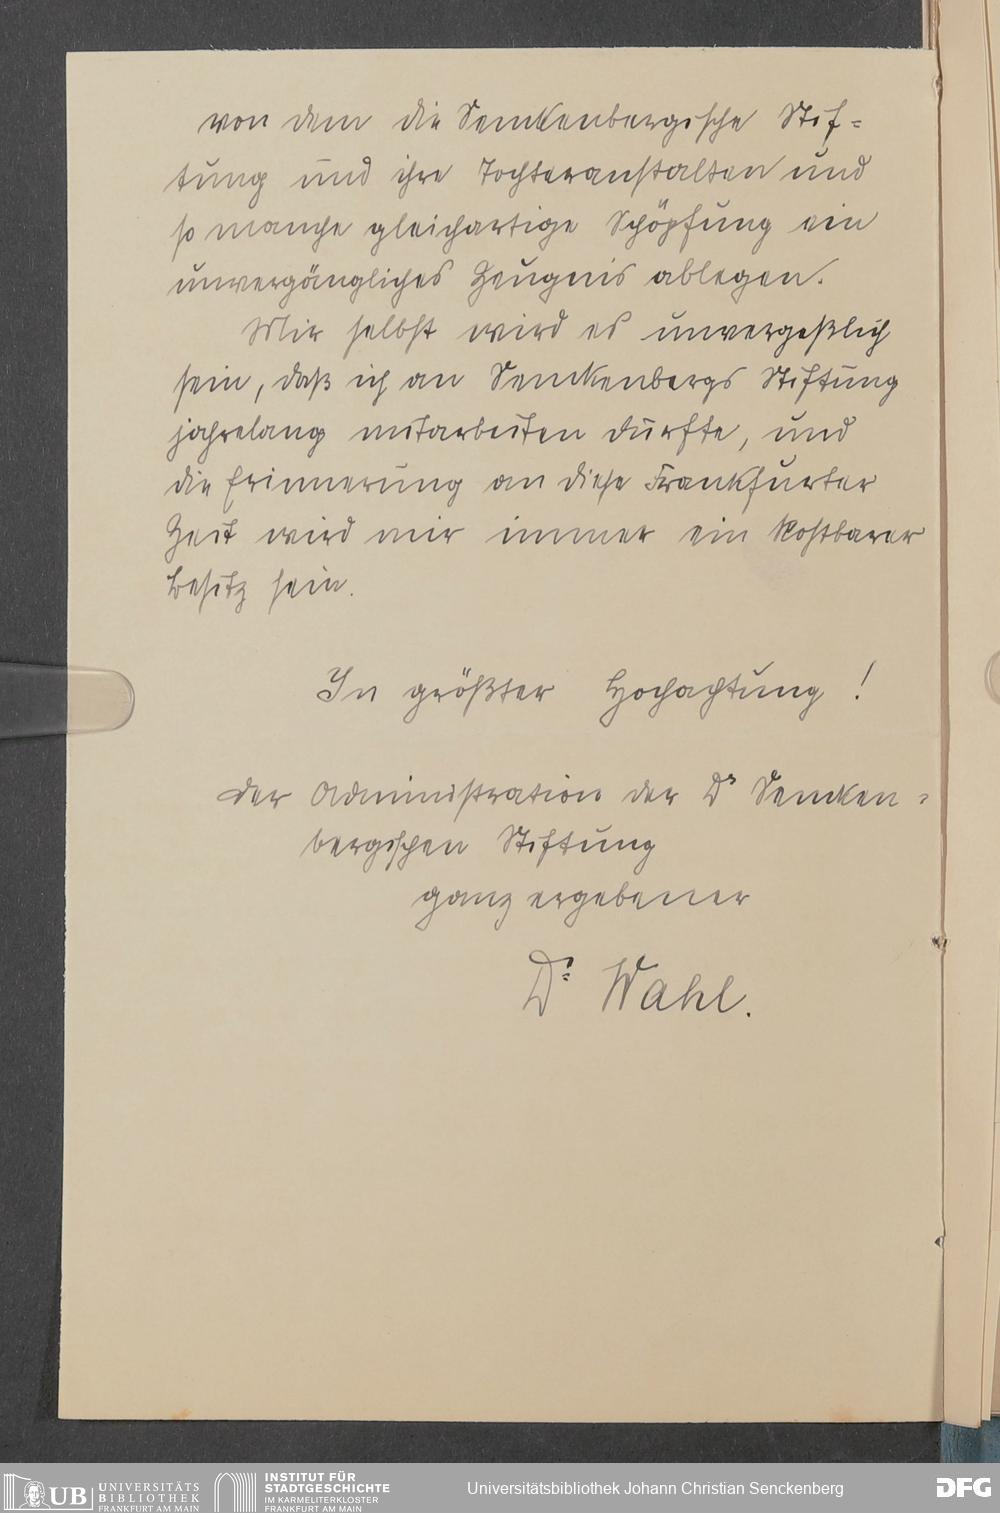 von dem die Senckenbergische Stif=
tung und ihre Tochteranstalten und
so manche gleichartige Schöpfung ein
unvergängliches Zeugnis ablegen.
Mir selbst wird es unvergeßlich
sein, daß ich an Senckenbergs Stiftung
jahrelang mitarbeiten durfte, und
die Erinnerung an diese Frankfurter
Zeit wird mir immer ein kostbarer
Besitz sein.
In größter Hochachtung!
Der Administration der Dr Sencken=
bergischen Stiftung
ganz ergebener
Dr. Wahl.
UB UNIVERSITÄTS
BIBLIOTHEK
FRANKFURT AM MAIN
INSTITUT FÜR
STADTGESCHICHTE
IM KARMELITERKLOSTER
FRANKFURT AM MAIN
Universitätsbibliothek Johann Christian Senckenberg
DFG